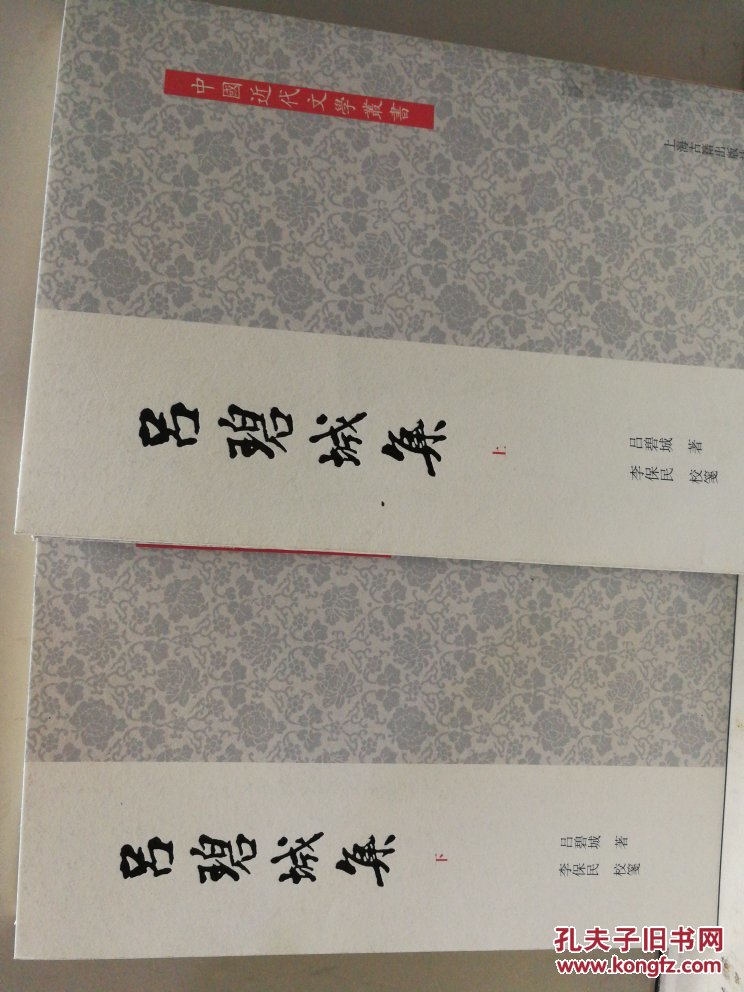 中國近代文學叢書
上海古籍出版
呂碧城集
上
吕碧城 著
李保民 校箋
呂碧城集
下
吕碧城 著
李保民 校箋
孔夫子旧书网
www.kongfz.com